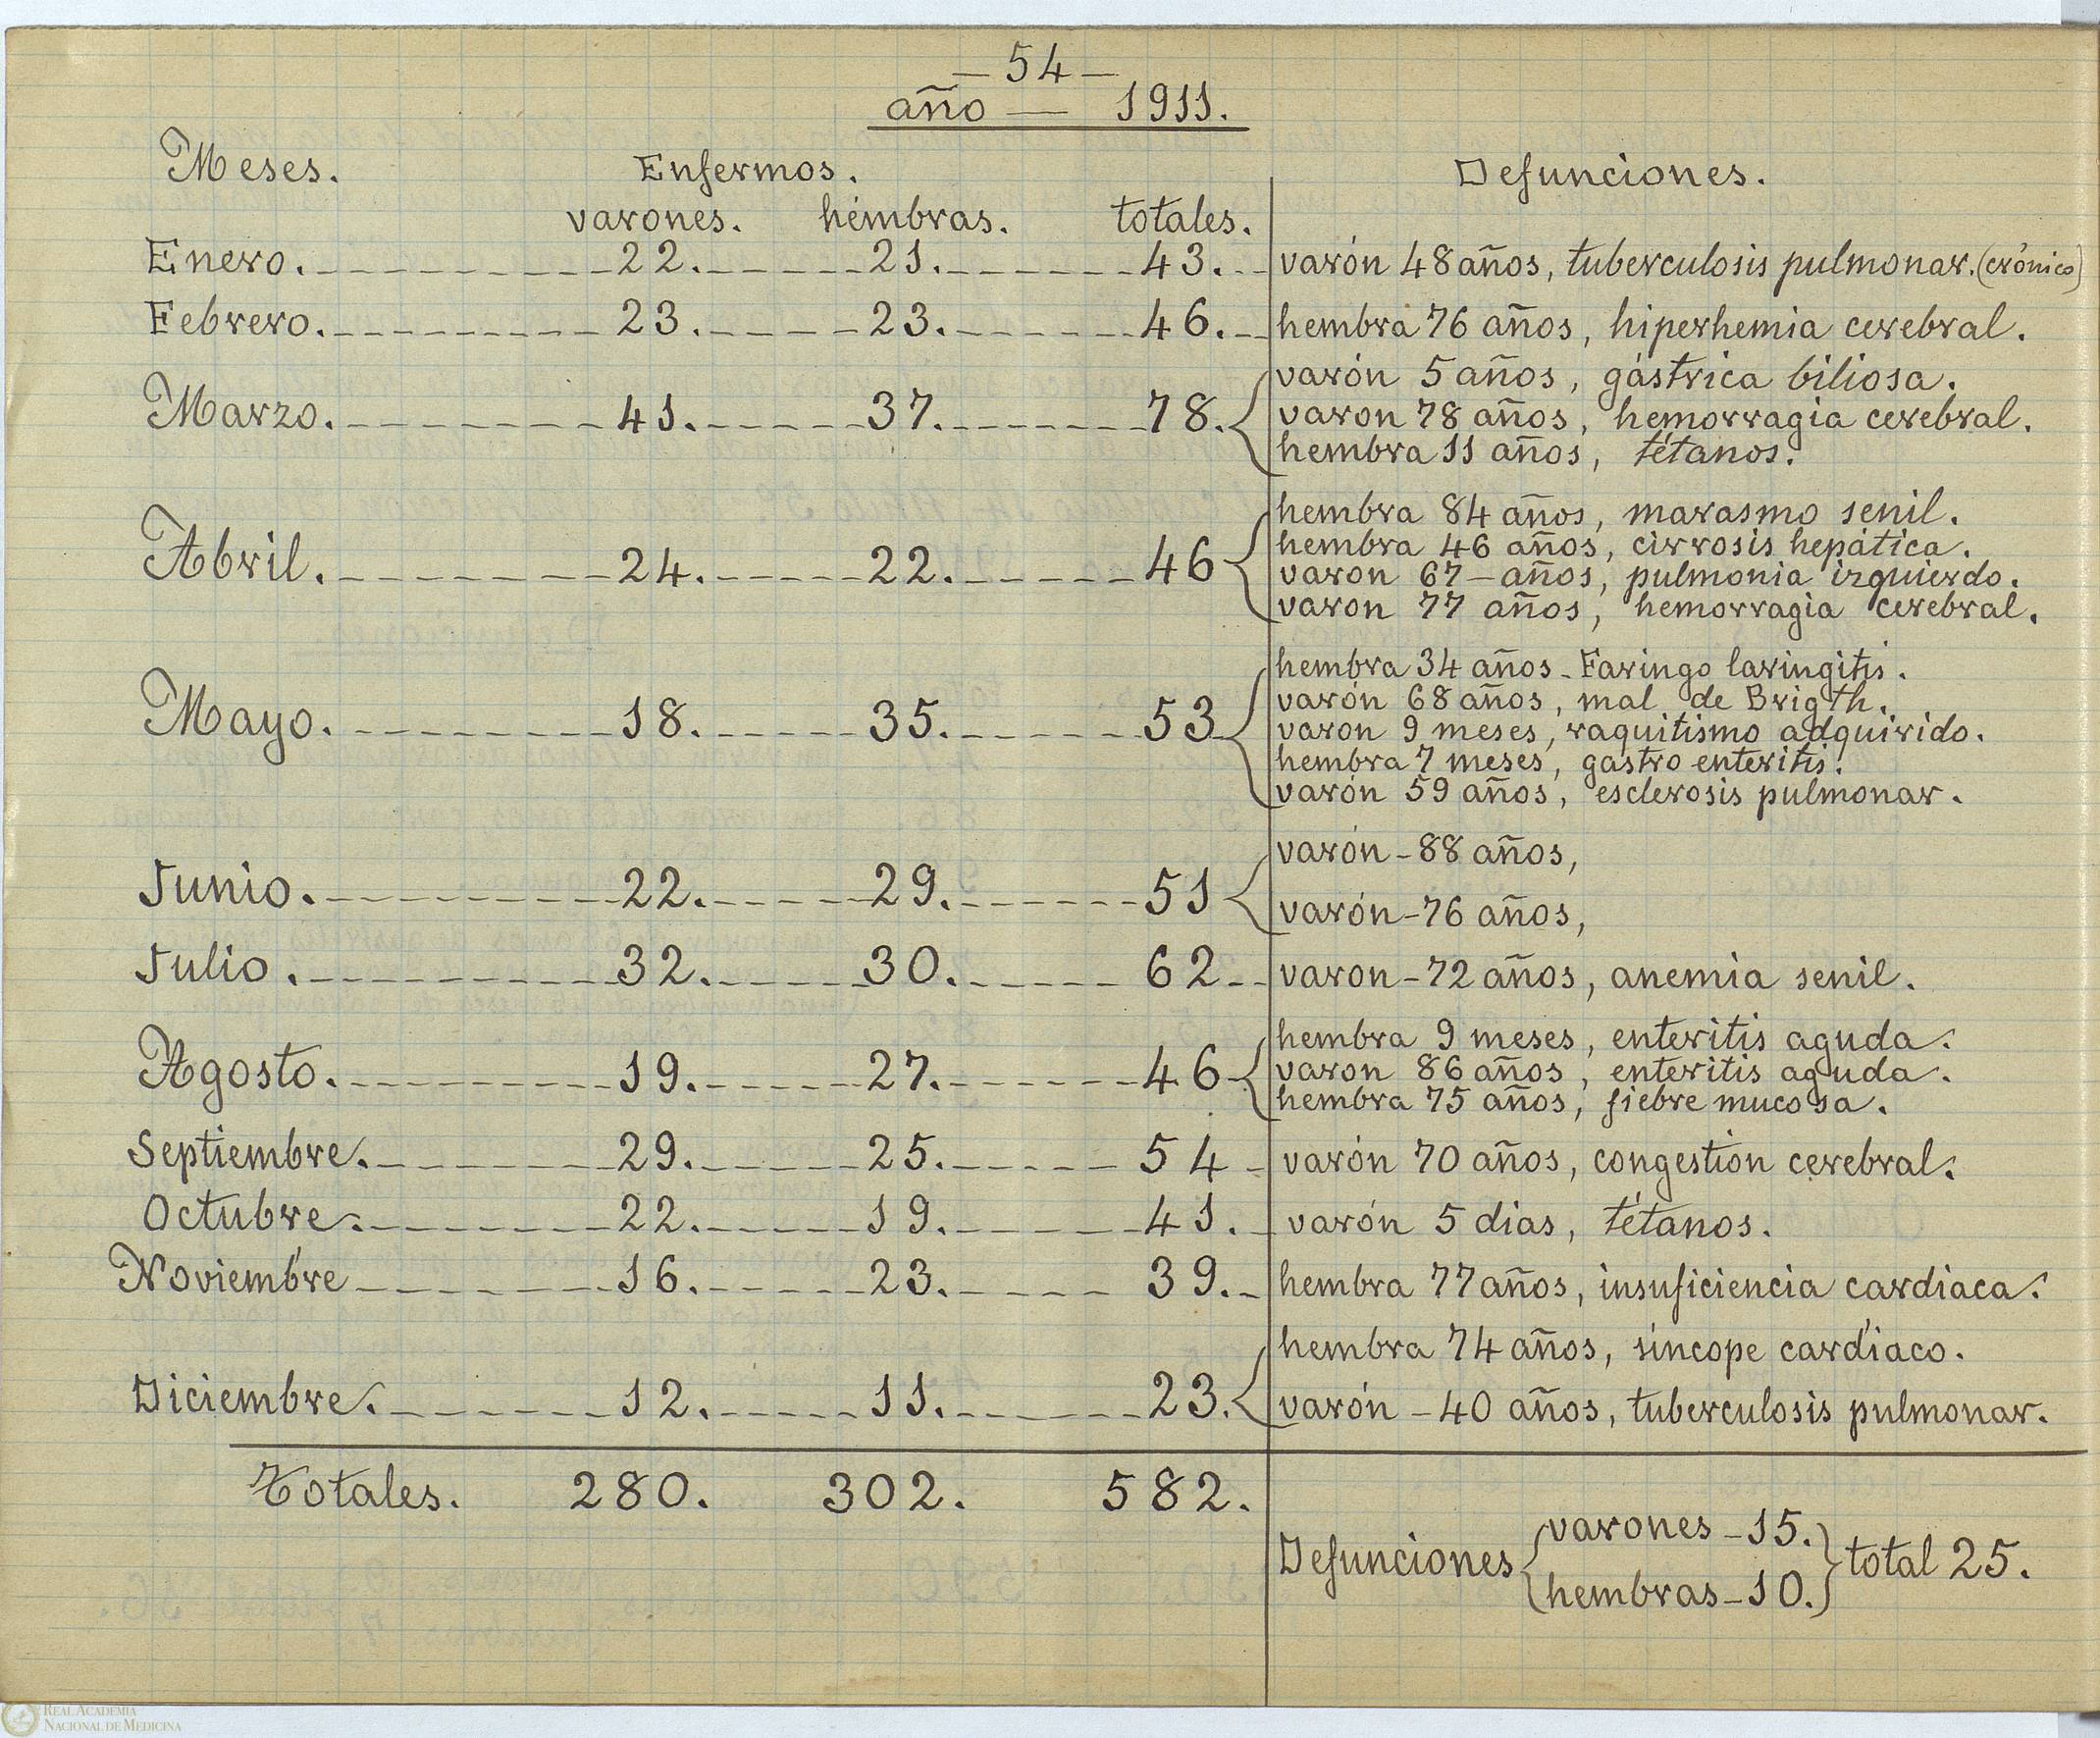 — 54 —
año — 1911.
Meses. Enfermos. Defunciones.
varones. hémbras. totales.
Enero. 22. 21. 43. varón 48 años, tuberculosis pulmonar. (crónico)
Febrero. 23. 23. 46. hembra 76 años, hiperhemia cerebral.
varón 5 años, gástrica biliosa.
Marzo. 41. 37. 78. varon 78 años, hemorragia cerebral.
hembra 11 años, tétanos.
hembra 84 años, marasmo senil.
hembra 46 años, cirrosis hepática.
Abril. 24. 22. 46 varon 67 — años, pulmonia izquierdo.
varon 77 años, hemorragia cerebral.
hembra 34 años - Faringo laringitis.
varón 68 años, mal de Brigth.
Mayo. 18. 35. 53 varon 9 meses, raquitismo adquirido.
hembra 7 meses, gastro enteritis.
varón 59 años, esclerosis pulmonar.
varón - 88 años,
Junio. 22. 29. 51
varón - 76 años,
Julio. 32. 30. 62 varon - 72 años, anemia senil.
hembra 9 meses, enteritis aguda.
Agosto. 19. 27. 46 varon 86 años, enteritis aguda.
hembra 75 años, fiebre mucosa.
Septiembre. 29. 25. 54 varón 70 años, congestión cerebral.
Octubre. 22. 19. 41. varón 5 dias, tétanos.
Noviembre 16. 23. 39. hembra 77 años, insuficiencia cardiaca.
hembra 74 años, síncope cardíaco.
Diciembre. 12. 11. 23. varón - 40 años, tuberculosis pulmonar.
Totales. 280. 302. 582.
varones - 15.
Defunciones total 25.
hembras - 10.
REAL ACADEMIA
NACIONAL DE MEDICINA